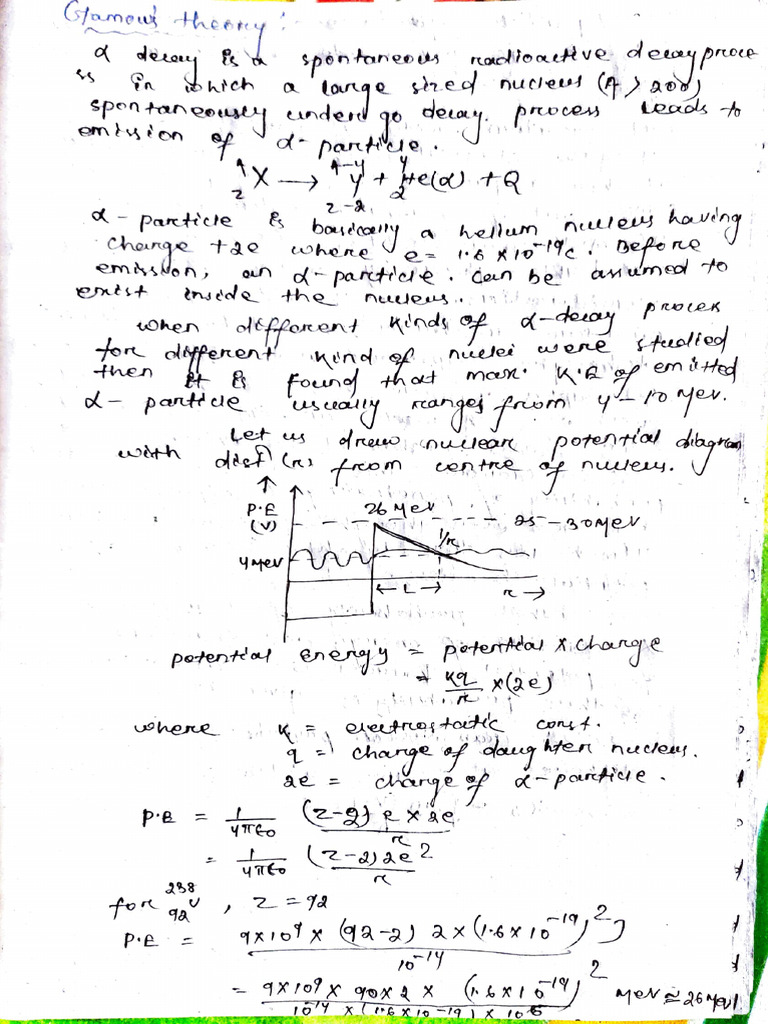 Glamous theory:
α decay is a spontaneous radioactive decay proce
ss in which a large sized nucleus (A > 200)
spontaneously undergo decay. process leads to
emission of α-particle.
ᴬ_Z X ⟶ ᴬ⁻⁴_Z-2 Y + ⁴_2 He(α) + Q
α-particle is basically a helium nucleus having
charge +2e where e = 1.6 × 10⁻¹⁹c. Before
emission, an α-particle. can be assumed to
exist inside the nucleus.
when different kinds of α-decay proces
for different kind of nuclei were studied
then it is found that max. K.E of emitted
α-particle usually ranges from 4-10 MeV.
Let us draw nuclear potential diagram
with dist (r) from centre of nucleus.
P.E
(V)
26 MeV
25 - 30 MeV
1/r
4 MeV
← L →
r →
potential energy = potential × charge
= Kq/r × (2e)
where K = electrostatic const.
q = charge of daughter nucleus.
2e = charge of α-particle.
P.E = 1/4πε₀ (Z-2) e × 2e/r
= 1/4πε₀ (Z-2) 2e²/r
for ²³⁸_92 U, Z = 92
P.E = 9×10⁹ × (92-2) 2 × (1.6 × 10⁻¹⁹)²/10⁻¹⁴ J
= 9×10⁹ × 90×2 × (1.6×10⁻¹⁹)²/10⁻¹⁴ × (1.6×10⁻¹⁹) × 10⁶ MeV ≈ 26 MeV